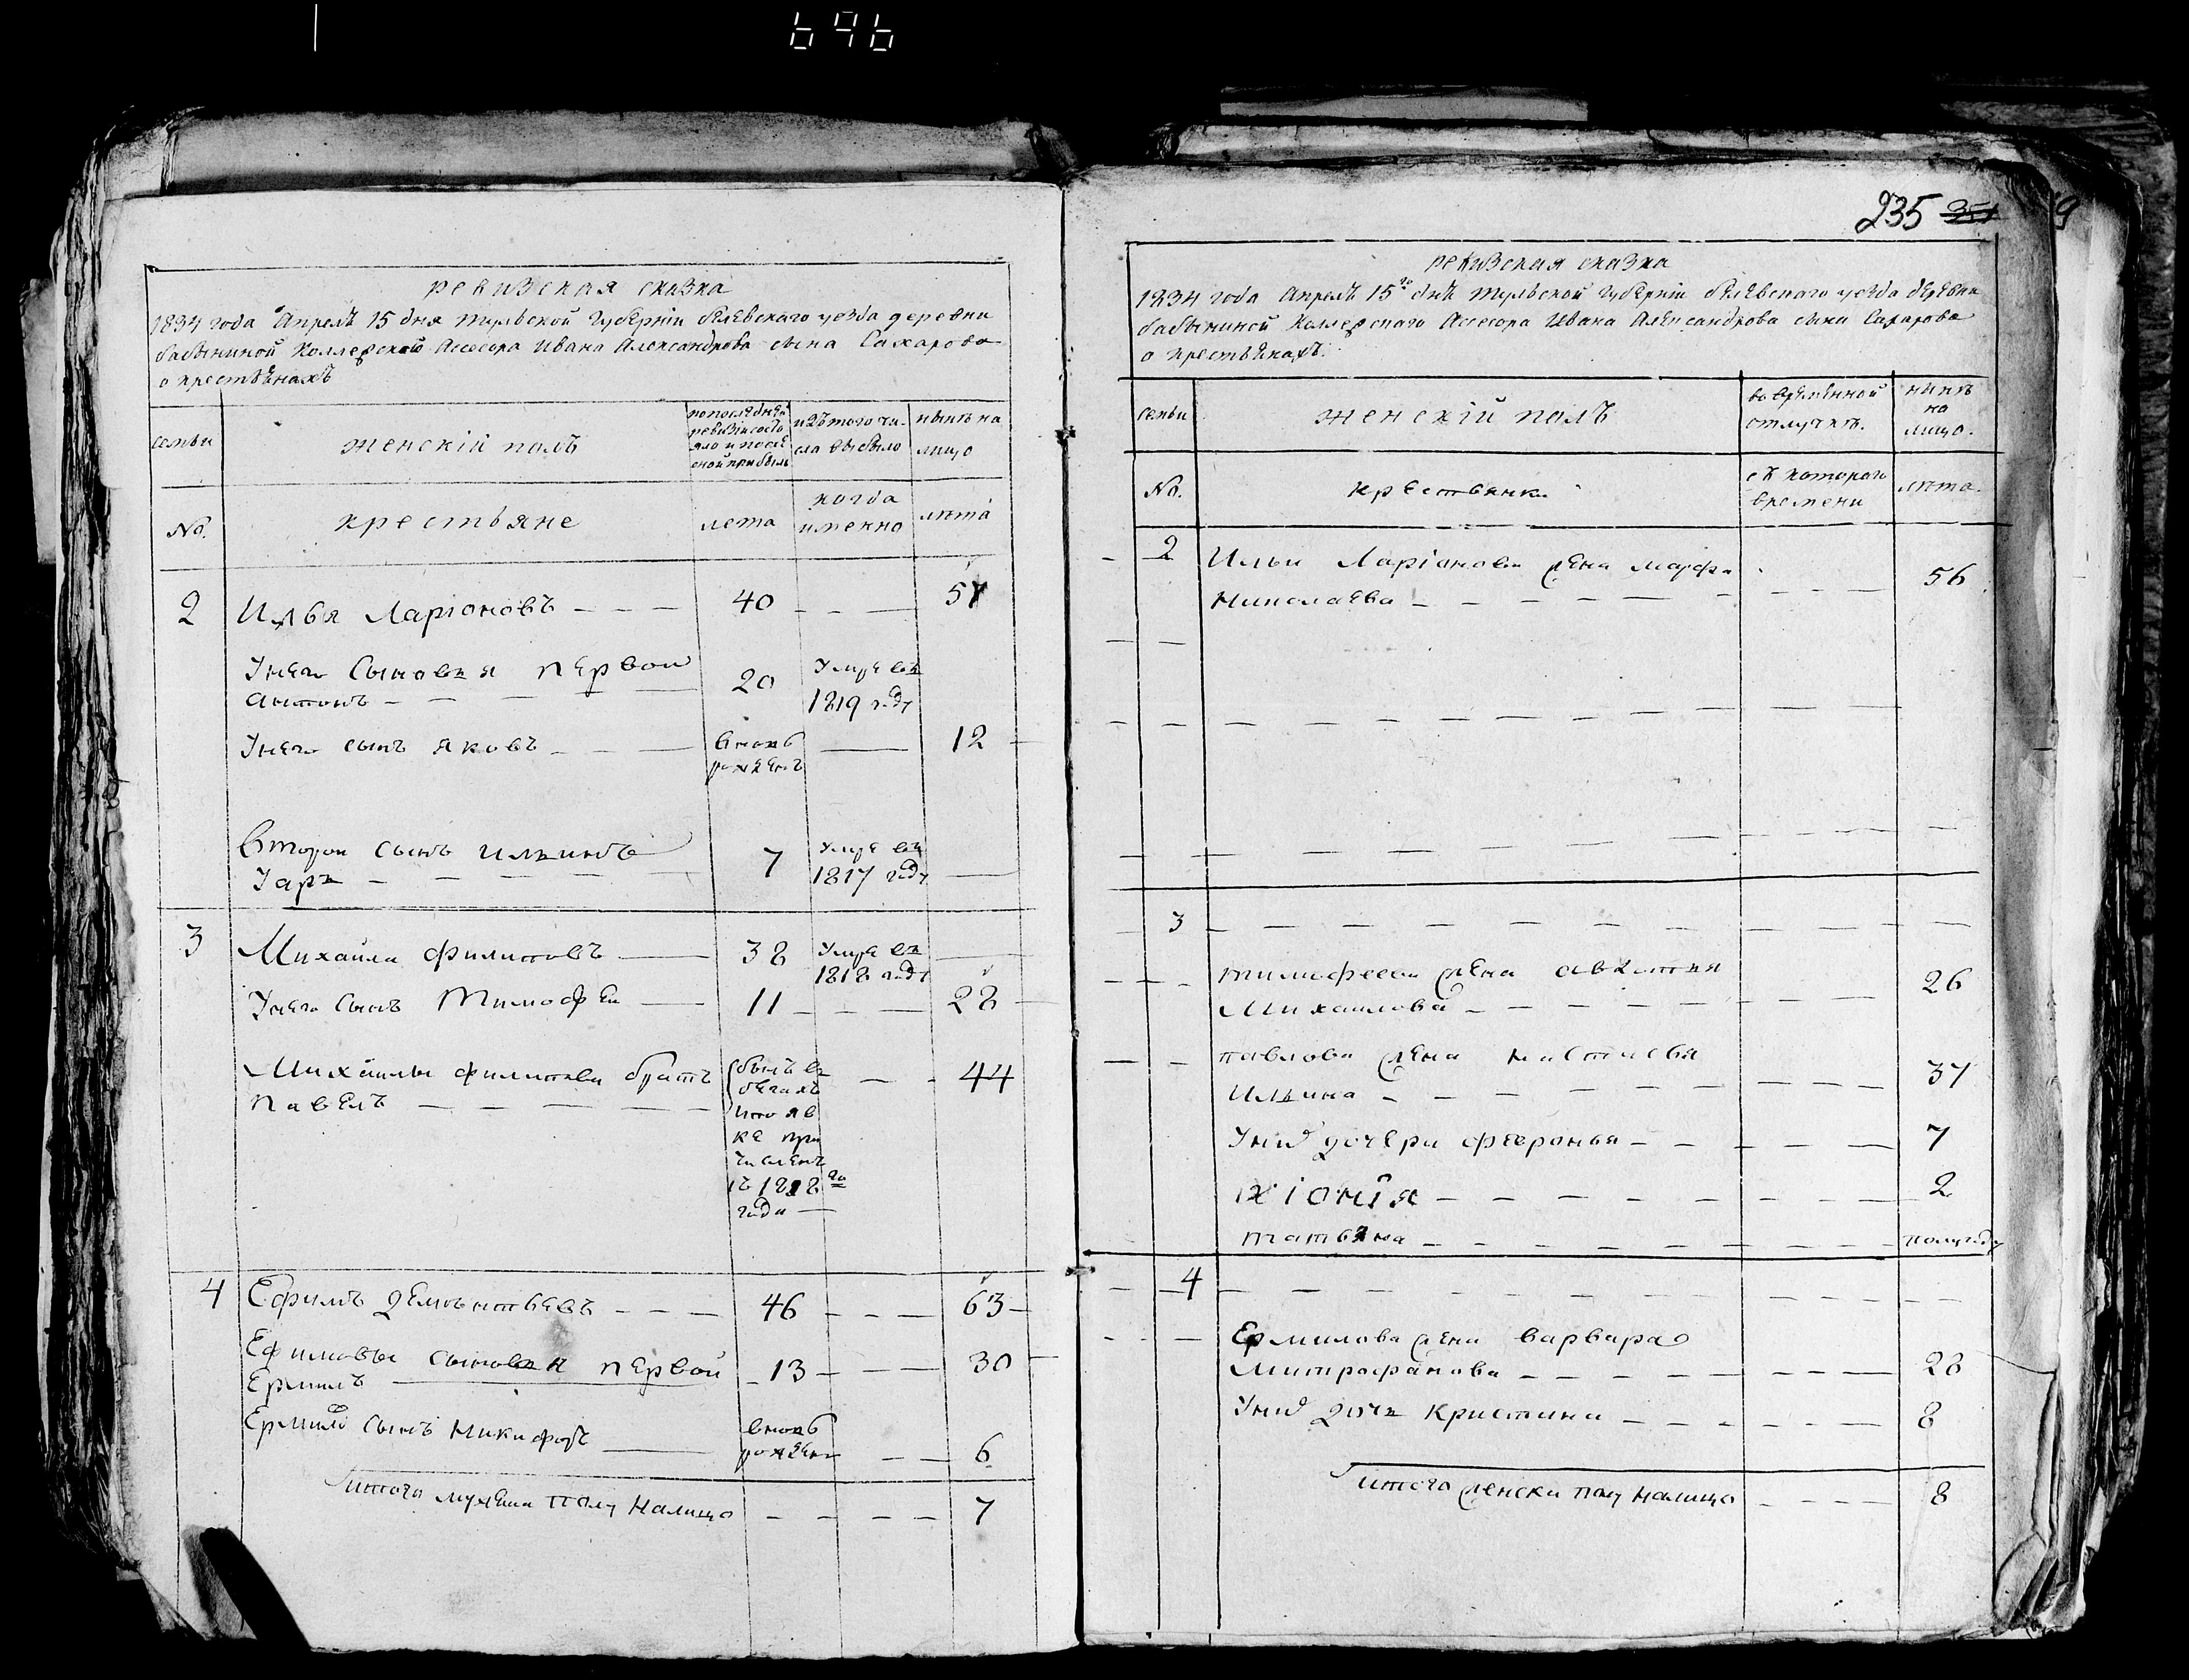 646
ревизская сказка
1834 года Апреля 15 дня Тульской Губернiи белевскаго уезда деревни
бабыниной Коллежской Ассесора Ивана Александрова сына Сахарова
о крестьянахъ
семьи
женскiй полъ
по последней
ревизiи состо
яло и после
оной прибыло
изъ того чи-
сла выбыло
ныне на
лицо
No.
крестьяне
лета
когда
именно
лета
2 Илья Ларiоновъ - - - 40 - - - 57
У него Сыновья первой
антонъ - - - 20 Умре въ
1819 году
У него сынъ яковъ - - - вновь
рожденъ — 12
Второй сынъ ильинъ
Уаръ - - - 7 Умре въ
1817 году —
3 Михаила филиповъ — 38 Умре въ
1818 году —
У него сынъ Тимофеи — 11 - - - 28
Михаилы филипова братъ
павелъ - - - былъ въ
бегахъ
и по яв
ке при
численъ
съ 1828 го
года — - - 44
4 Ефимъ дементьевъ - - - 46 - - - 63
Ефимовы сыновья первой
Ермилъ — 13 - - - 30
Ермилов сынъ Никифоръ — вновь
рожденъ - - 6
итого мужеска полу налицо - - - - 7
235
9
ревизская сказка
1834 года Апреля 15го дня Тульской Губернiи белевскаго уезда деревни
бабыниной Коллежскаго Ассесора Ивана Александрова сына Сахарова
о крестьянахъ.
семьи
женскiй полъ
во временной
отлучке.
ныне
на
лицо.
No.
крестьянки
съ котораго
времени
лета.
2 Ильи Ларiонова жена марфа
Николаева - - - 56
3 - - -
тимофеева жена авдотья
Михаилова - - - 26
павлова жена настасья
Ильина - - - 37
У них дочери февронья - - - 7
хiонiя - - - 2
татьяна - - - полугоду
4 - - -
Ермилова жена варвара
Митрофанова - - - 28
У них дочь кристина - - - 8
итого женска полу налицо - - - - 8